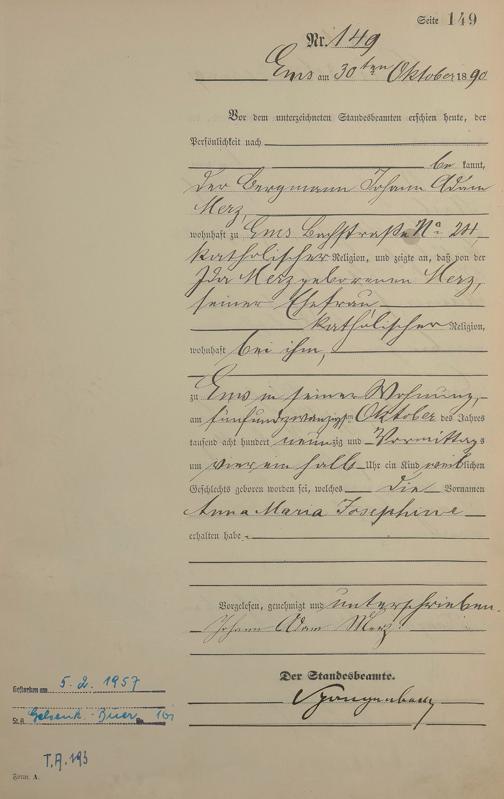 Seite 149
Nr. 149
Ems am 30ten Oktober 1890
Vor dem unterzeichneten Standesbeamten erschien heute, der
Persönlichkeit nach
be kannt,
der Bergmann Johann Adam
Merz,
wohnhaft zu Ems Bachstraße No 24,
katholischer Religion, und zeigte an, daß von der
Ida Merz geborenen Merz,
seiner Ehefrau
katholischer Religion,
wohnhaft bei ihm,
zu Ems in seiner Wohnung,
am fünfundzwanzigsten Oktober des Jahres
tausend acht hundert neunzig und Vormittags
um vier ein halb Uhr ein Kind weiblichen
Geschlechts geboren worden sei, welches die Vornamen
Anna Maria Josephine
erhalten habe
Vorgelesen, genehmigt und unterschrieben.
Johann Adam Merz
Der Standesbeamte.
Gestorben am 5.2.1957
St.A. Gelsenk.-Buer
T.A. 193
Form. A.